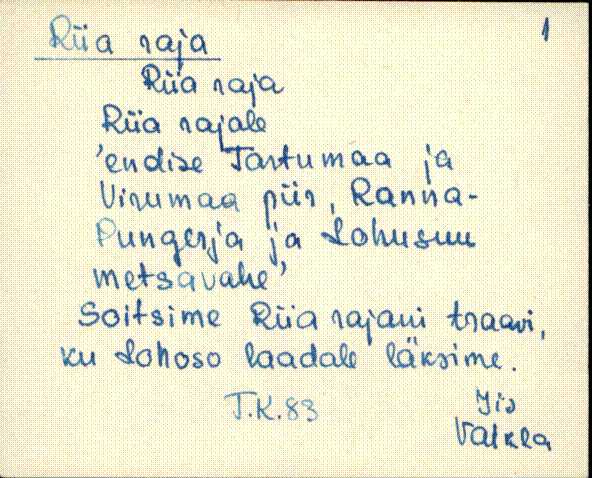 Riia raja 1
Riia raja
Riia rajale
'endise Tartumaa ja
Virumaa piir, Ranna-
Pungerja ja Lohusuu
metsavahe'
Soitsime Riia rajani traavi,
ku Lohoso laadale läksime.
T.K.83 Iis
Valkla